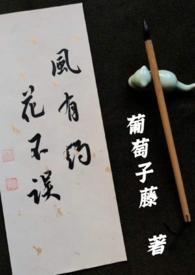 風有約
花不誤
葡萄子藤 著